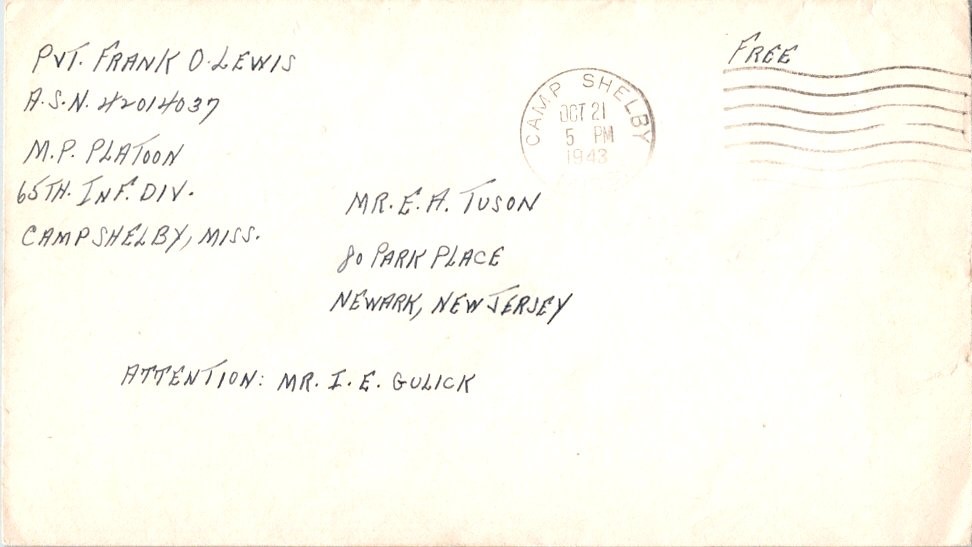 PVT. FRANK O. LEWIS
A.S.N. 42014037
M.P. PLATOON
65TH. INF. DIV.
CAMP SHELBY, MISS.
FREE
CAMP SHELBY
OCT 21
5 PM
1943
MR. E. A. TUSON
80 PARK PLACE
NEWARK, NEW JERSEY
ATTENTION: MR. I. E. GULICK